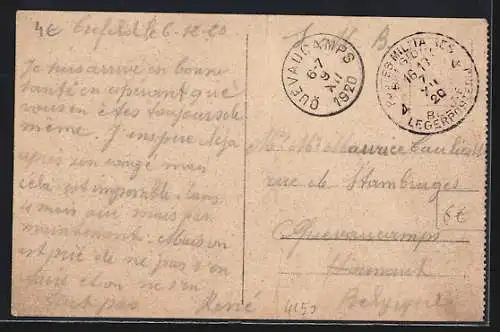 4€ Crefeld le 6-12-20
Je suis arrivé en bonne
santé en esperant que
vous en êtes toujours de
même. J'espère déjà
après son congé mais
cela est impossible. Dans
le mois mais pas
maintenant. Mais on
est prié de ne pas s'en
faire et on ne s'en
fait pas René
S. M. B.
QUEVAUCAMPS
6-7
9
XII
1920
POSTES MILITAIRES
BELGIQUE 4
16-17
7
XII
20
4 BELGIE
LEGERPOSTERIJ
Mr Me Maurice
rue de Stambruges
6€
Quevaucamps
Hainaut
Belgique